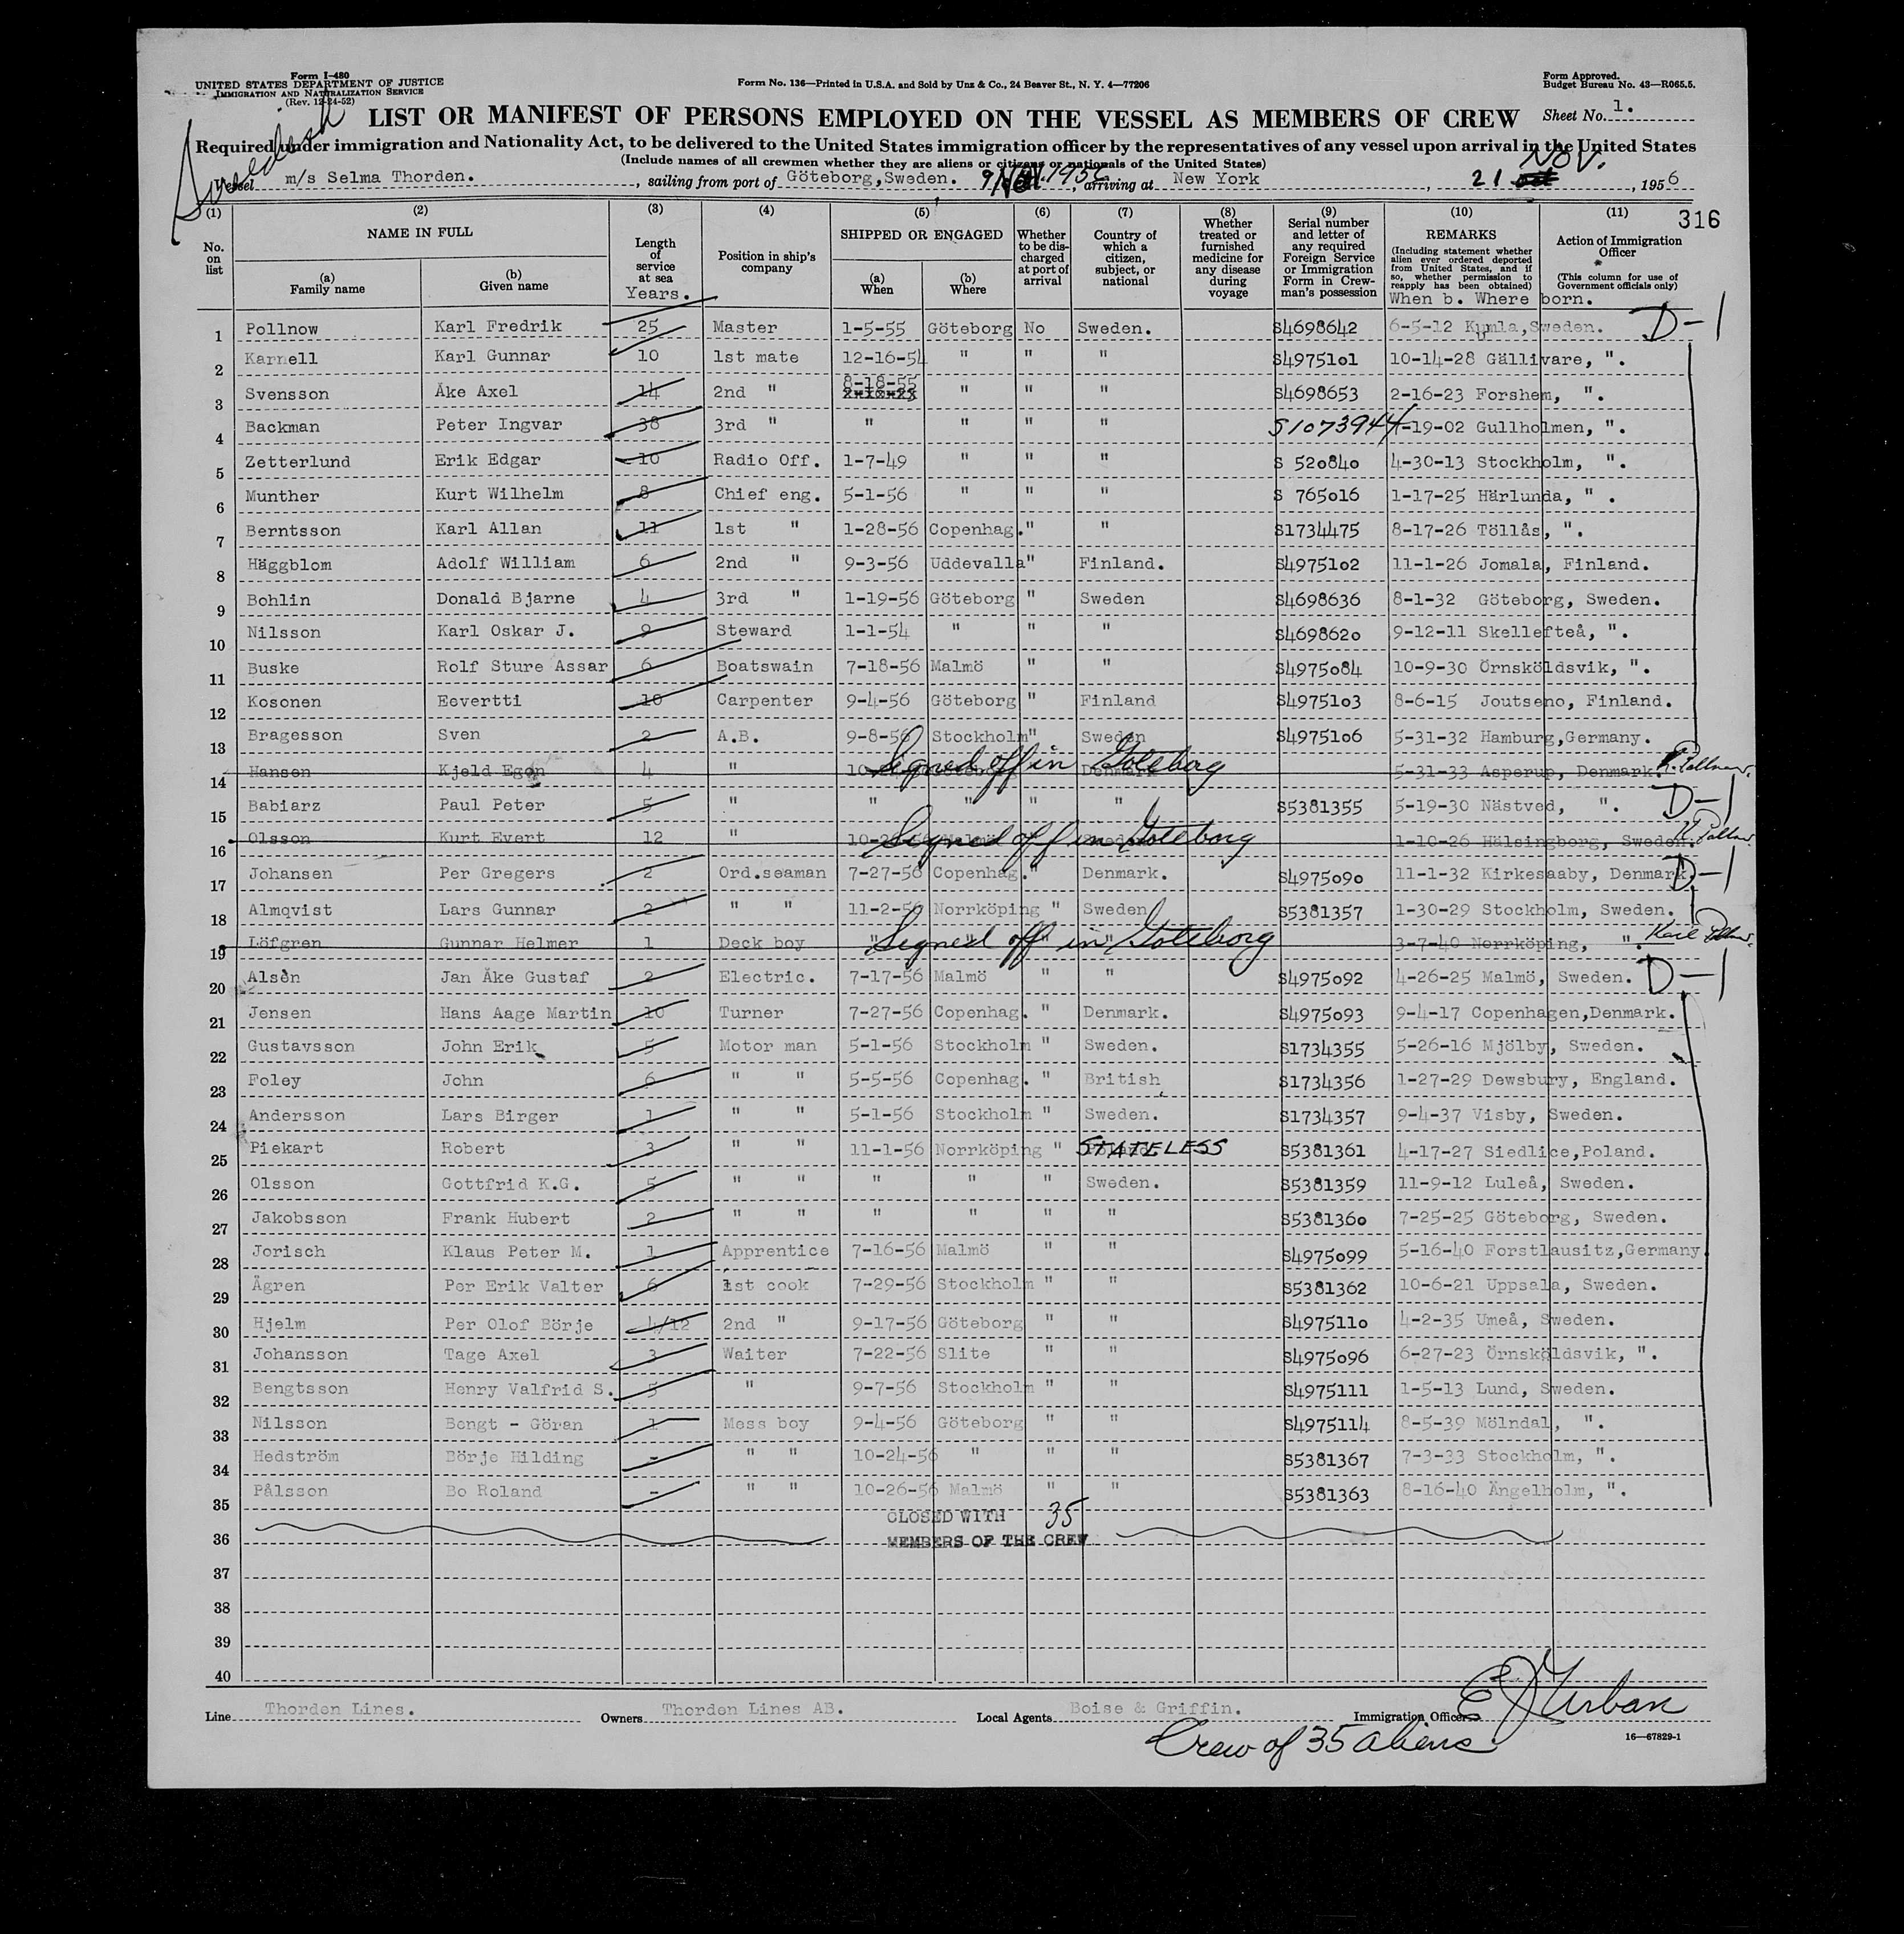 Form I-480
UNITED STATES DEPARTMENT OF JUSTICE
IMMIGRATION AND NATURALIZATION SERVICE
(Rev. 12-24-52)
Form No. 136—Printed in U.S.A. and Sold by Unz & Co., 24 Beaver St., N. Y. 4—77206
Form Approved.
Budget Bureau No. 43—R065.5.
Swedish
LIST OR MANIFEST OF PERSONS EMPLOYED ON THE VESSEL AS MEMBERS OF CREW
Sheet No. 1.
Required under immigration and Nationality Act, to be delivered to the United States immigration officer by the representatives of any vessel upon arrival in the United States
(Include names of all crewmen whether they are aliens or citizens or nationals of the United States)
Vessel m/s Selma Thorden. , sailing from port of Göteborg,Sweden. 9 Nov. 1956, arriving at New York , 21 Nov. , 1956
316
(1) No. on list
(2) NAME IN FULL (a) Family name (b) Given name
(3) Length of service at sea Years.
(4) Position in ship's company
(5) SHIPPED OR ENGAGED (a) When (b) Where
(6) Whether to be discharged at port of arrival
(7) Country of which a citizen, subject, or national
(8) Whether treated or furnished medicine for any disease during voyage
(9) Serial number and letter of any required Foreign Service or Immigration Form in Crewman's possession
(10) REMARKS (Including statement whether alien ever ordered deported from United States, and if so, whether permission to reapply has been obtained) When b. Where born.
(11) Action of Immigration Officer (This column for use of Government officials only)
1 Pollnow Karl Fredrik 25 Master 1-5-55 Göteborg No Sweden. S4698642 6-5-12 Kumla,Sweden. D-1
2 Karnell Karl Gunnar 10 1st mate 12-16-54 " " " S4975101 10-14-28 Gällivare, ".
3 Svensson Åke Axel 14 2nd " 8-18-55 " " " S4698653 2-16-23 Forshem, ".
4 Backman Peter Ingvar 38 3rd " " " " " S1073944 -19-02 Gullholmen, ".
5 Zetterlund Erik Edgar 10 Radio Off. 1-7-49 " " " S 520840 4-30-13 Stockholm, ".
6 Munther Kurt Wilhelm 8 Chief eng. 5-1-56 " " " S 765016 1-17-25 Härlunda, " .
7 Berntsson Karl Allan 11 1st " 1-28-56 Copenhag. " " S1734475 8-17-26 Töllås, ".
8 Häggblom Adolf William 6 2nd " 9-3-56 Uddevalla " Finland. S4975102 11-1-26 Jomala, Finland.
9 Bohlin Donald Bjarne 4 3rd " 1-19-56 Göteborg " Sweden S4698636 8-1-32 Göteborg, Sweden.
10 Nilsson Karl Oskar J. 9 Steward 1-1-54 " " " S4698620 9-12-11 Skellefteå, ".
11 Buske Rolf Sture Assar 6 Boatswain 7-18-56 Malmö " " S4975084 10-9-30 Örnsköldsvik, ".
12 Kosonen Eevertti 10 Carpenter 9-4-56 Göteborg " Finland S4975103 8-6-15 Joutseno, Finland.
13 Bragesson Sven 2 A.B. 9-8-56 Stockholm " Sweden S4975106 5-31-32 Hamburg,Germany.
14 Hansen Kjeld Egon 4 " Signed off in Goteborg Denmark 5-31-33 Asperup, Denmark. K. Pollnow.
15 Babiarz Paul Peter 5 " " " " " S5381355 5-19-30 Nästved, ". D-1
16 Olsson Kurt Evert 12 " Signed off in Goteborg 1-10-26 Hälsingborg, Sweden. K. Pollnow.
17 Johansen Per Gregers 2 Ord.seaman 7-27-56 Copenhag. " Denmark. S4975090 11-1-32 Kirkesaaby, Denmark. D-1
18 Almqvist Lars Gunnar 2 " " 11-2-56 Norrköping " Sweden S5381357 1-30-29 Stockholm, Sweden.
19 Löfgren Gunnar Helmer 1 Deck boy " " " " Signed off in Goteborg 3-7-40 Norrköping, ". Karl Pollnow.
20 Alsèn Jan Åke Gustaf 2 Electric. 7-17-56 Malmö " " S4975092 4-26-25 Malmö, Sweden. D-1
21 Jensen Hans Aage Martin 10 Turner 7-27-56 Copenhag. " Denmark. S4975093 9-4-17 Copenhagen,Denmark.
22 Gustavsson John Erik 5 Motor man 5-1-56 Stockholm " Sweden. S1734355 5-26-16 Mjölby, Sweden.
23 Foley John 6 " " 5-5-56 Copenhag. " British S1734356 1-27-29 Dewsbury, England.
24 Andersson Lars Birger 1 " " 5-1-56 Stockholm " Sweden. S1734357 9-4-37 Visby, Sweden.
25 Piekart Robert 3 " " 11-1-56 Norrköping " STATELESS S5381361 4-17-27 Siedlice,Poland.
26 Olsson Gottfrid K.G. 5 " " " " " Sweden. S5381359 11-9-12 Luleå, Sweden.
27 Jakobsson Frank Hubert 2 " " " " " " S5381360 7-25-25 Göteborg, Sweden.
28 Jorisch Klaus Peter M. 1 Apprentice 7-16-56 Malmö " " S4975099 5-16-40 Forstlausitz,Germany.
29 Ågren Per Erik Valter 6 1st cook 7-29-56 Stockholm " " S5381362 10-6-21 Uppsala, Sweden.
30 Hjelm Per Olof Börje 4/12 2nd " 9-17-56 Göteborg " " S4975110 4-2-35 Umeå, Sweden.
31 Johansson Tage Axel 3 Waiter 7-22-56 Slite " " S4975096 6-27-23 Örnsköldsvik, ".
32 Bengtsson Henry Valfrid S. 5 " 9-7-56 Stockholm " " S4975111 1-5-13 Lund, Sweden.
33 Nilsson Bengt - Göran 1 Mess boy 9-4-56 Göteborg " " S4975114 8-5-39 Mölndal, ".
34 Hedström Börje Hilding - " " 10-24-56 " " " S5381367 7-3-33 Stockholm, ".
35 Pålsson Bo Roland - " " 10-26-56 Malmö " " S5381363 8-16-40 Ängelholm, ".
36 CLOSED WITH 35
MEMBERS OF THE CREW
37
38
39
40
Line Thorden Lines. Owners Thorden Lines AB. Local Agents Boise & Griffin. Immigration Officer E J Urban
Crew of 35 aliens
16—67829-1